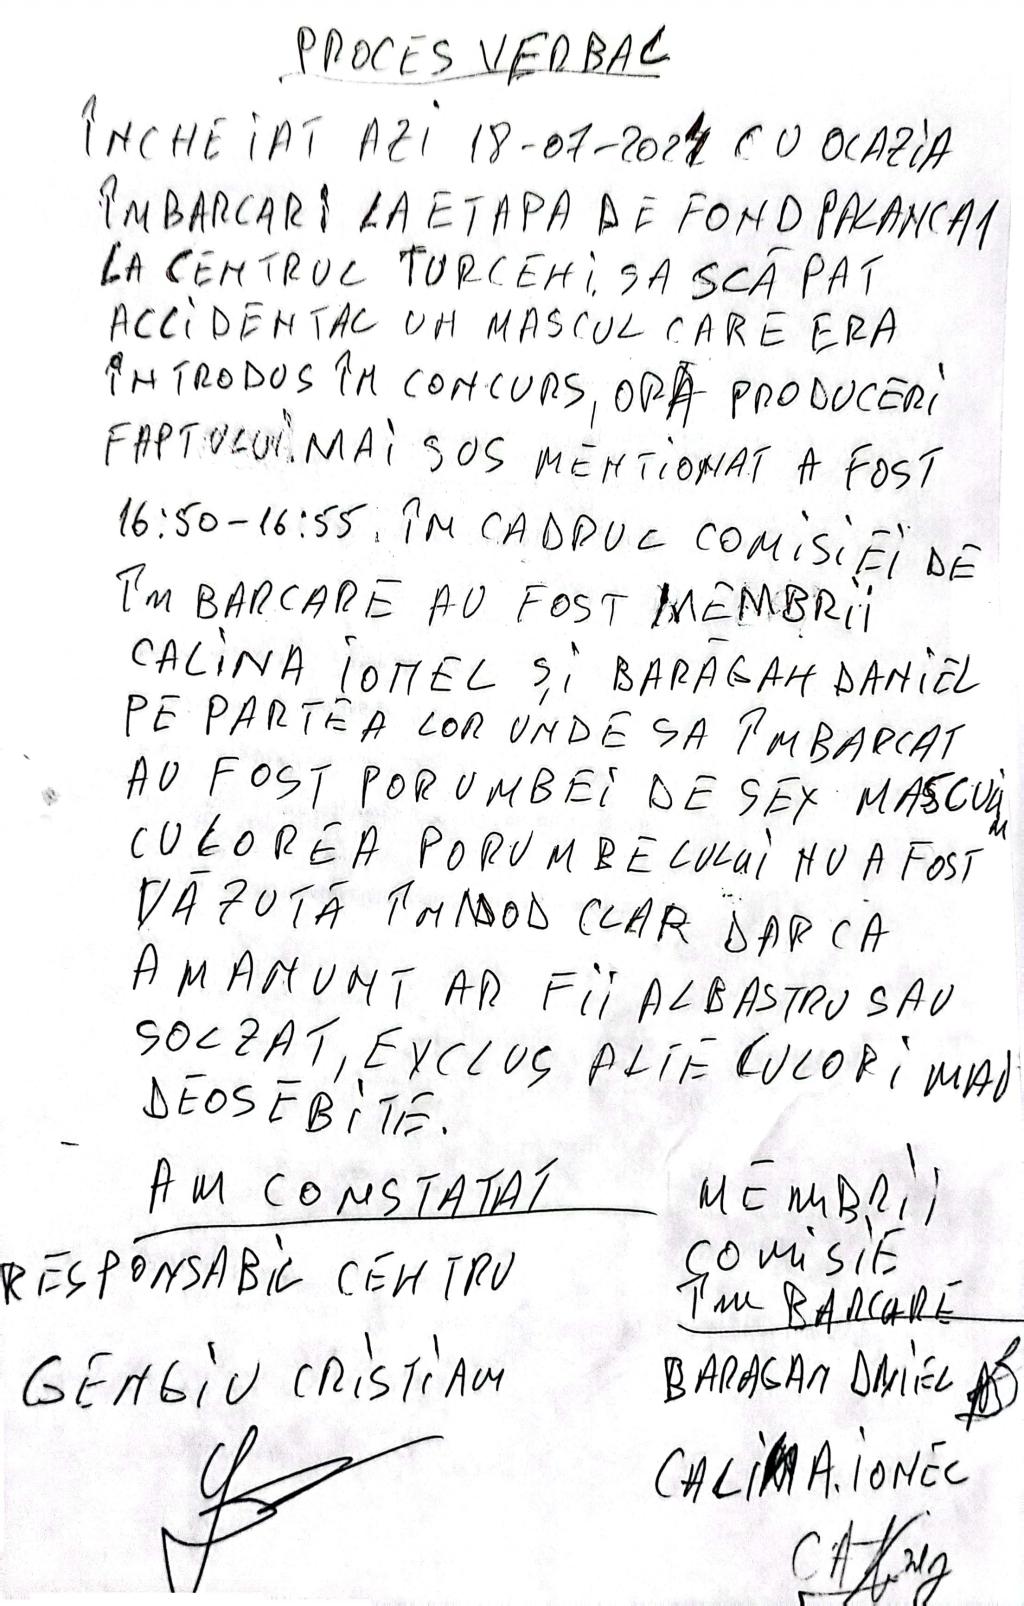 PROCES VERBAL
ÎNCHEIAT AZI 18-07-2021 CU OCAZIA
ÎMBARCARI LA ETAPA DE FOND PALANCA 1
LA CENTRUL TURCENI. SA SCĂPAT
ACCIDENTAL UN MASCUL CARE ERA
ÎNTRODUS ÎN CONCURS, ORĂ PRODUCERI
FAPTULUI MAI SUS MENTIONAT A FOST
16:50-16:55. ÎN CADRUL COMISIEI DE
ÎMBARCARE AU FOST MEMBRII
CALINA IONEL ȘI BARĂGAN DANIEL
PE PARTEA LOR UNDE SA ÎMBARCAT
AU FOST PORUMBEI DE SEX MASCULIN
CULOREA PORUMBELULUI NU A FOST
VĂZUTĂ ÎN MOD CLAR DAR CA
AMANUNT AR FII ALBASTRU SAU
SOLZAT, EXCLUS ALTE CULORI MAI
DEOSEBITE.
AM CONSTATAT
RESPONSABIL CENTRU
GENGIU CRISTIAN
MEMBRII
COMISIE
ÎMBARCARE
BARAGAN DANIEL
CALINA IONEL